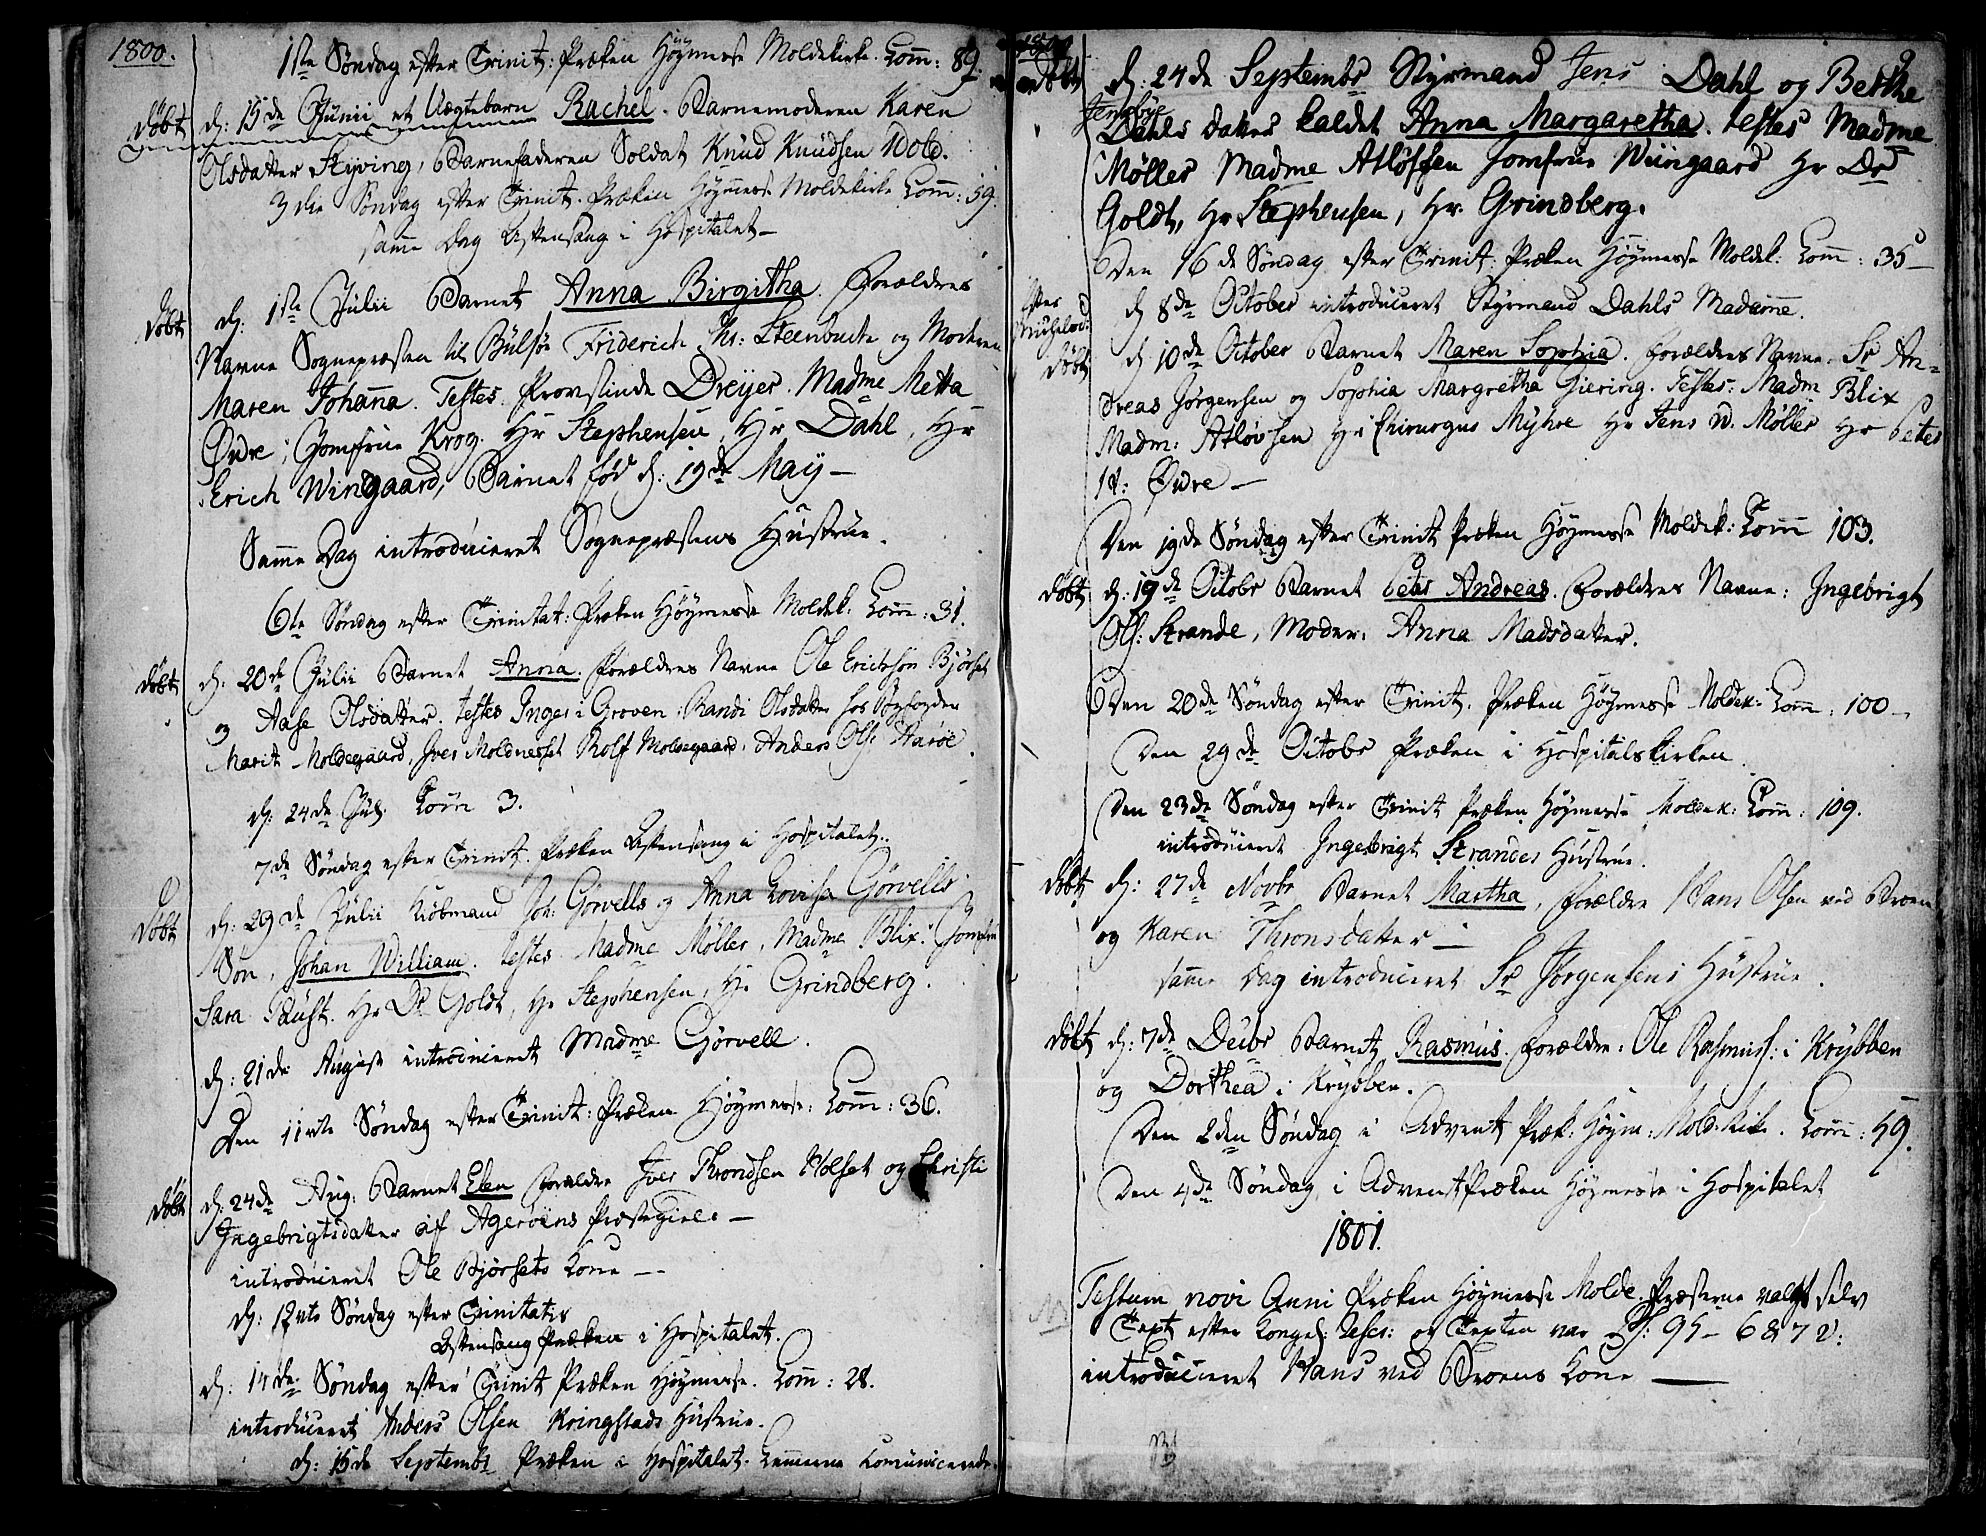 1800.
1ste Søndag efter Trinit: Præken Høymesse Moldekirke. Com: 89.
døbt d: 15de Junii et Uægtebarn Rachel. Barnemoderen Karen
Olsdatter Støving, Barnefaderen Soldat Knud Knudsen Dold.
3die Søndag efter Trinit. Præken Høymesse Moldekirke Com: 59.
samme Dag Aftensang i Hospitalet –
døbt d: 1ste Julii Barnet Anna Birgitha. Forældres
Navne Sognepræsten til Bulsøe Friderich Chr: Steenbuch og Moderen
Maren Johanna. Testes Provstinde Dreyer. Madme Metta
Øvre, Jomfrue Krog. Hr Stephensen, Hr Dahl, Hr
Erich Wingaard, Barnet fød d: 19de May –
Samme Dag introduceret Sognepræstens Hustrue.
6te Søndag efter Trinitat: Præken Høymesse Moldek: Com: 31.
døbt d: 20de Julii Barnet Anna. Forældres Navne Ole Erichsøn Bjørset
og Aase Olsdatter. testes Inger i Groven, Randi Olsdatter hos Byefogden
Marit Moldegaard, Iver Moldnesset Rolf Moldegaard, Anders Ols: Harøe
d: 24de Jul. Com 3.
7de Søndag efter Trinit. Præken Aftensang i Hospitalet.
døbt d: 29de Julii Kiøbmand Joh: Gørvells og Anna Lovisa Gørvells
Søn, Johan William. testes Madme Møller, Madme Blix. Jomfru
Sara Faust. Hr Dr Goldt, Hr Stephensen, Hr Grindberg.
d: 21de August introduceret Madme Gørvell.
Den 11vte Søndag efter Trinit: Præken Høymesse: Com: 36.
døbt d: 24de Aug: Barnet Elen Forældre Iver Throndsen Holset og Christi
Ingebrigtsdatter af Agerøens Præstegield –
introduceret Ole Bjørsets Kone –
d: 12vte Søndag efter Trinitatis
Aftensang Præken i Hospitalet.
d: 14de Søndag efter Trinit Præken Høymesse. Com: 28.
introduceret Anders Olsen Kringstads Hustrue.
d: 15de Septembr Præken i Hospitalet. Lemmerne Communicerede.
1800
døbt d: 24de Septembr Styrmand Jens Dahl og Berthe
Jensbye
Dahls datter kaldet Anna Margaretha. testes Madme
Møller Madme Atløfsen Jomfrue Wiingaard Hr Dr
Goldt, Hr Stephensen, Hr. Grindberg.
Den 16de Søndag efter Trinit. Præken Høymesse Moldek: Com: 35 –
efter Michelsd: d 8de October introduceret Styrmand Dahls Madamme.
døbt d: 10de October Barnet Maren Sophia. Forældres Navne. Sr An-
dreas Jørgensen og Sophia Margretha Giering. Testes: Madm Blix
Madm: Atløvsen Hr Chirurgus Myhre Hr Jens N. Møller Hr Peter
A: Øvre –
Den 19de Søndag efter Trinit Præken Høymesse Moldek: Com 103.
døbt d: 19de Octobr Barnet Peter Andreas. Forældres Navne: Ingebrigt
Ols: Strande, Moder: Anna Madsdatter.
Den 20de Søndag efter Trinit. Præken Høymesse Moldek: Com: 100 –
Den 29de Octobr Præken i Hospitalskirken.
Den 23de Søndag efter Trinit Præken Høymesse Moldek: Com: 109.
introduceret Ingebrigt Strandes Hustrue.
døbt d: 27de Novbr Barnet Martha, Forældre Hans Olsen ved Broen
og Karen Thronsdatter –
samme Dag introduceret Sr Jørgensens Hustrue.
døbt d: 7de Decbr Barnet Rasmus. Forældre: Ole Rasmuss: i Krybben
og Dorthea i Krybben.
Den 2den Søndag i Advent Præk: Høym: Mold:kirk. Com: 59.
Den 4de Søndag i Advent Præken Høymesse i Hospitalet
1801.
Festum novi Anni Præken Høymesse Molde. Præsterne valgt selv
Text efter Kongel: Rescr: og Texten var Ps: 95 – 6 & 7 V:
introduceret Hans ved Broens Kone –